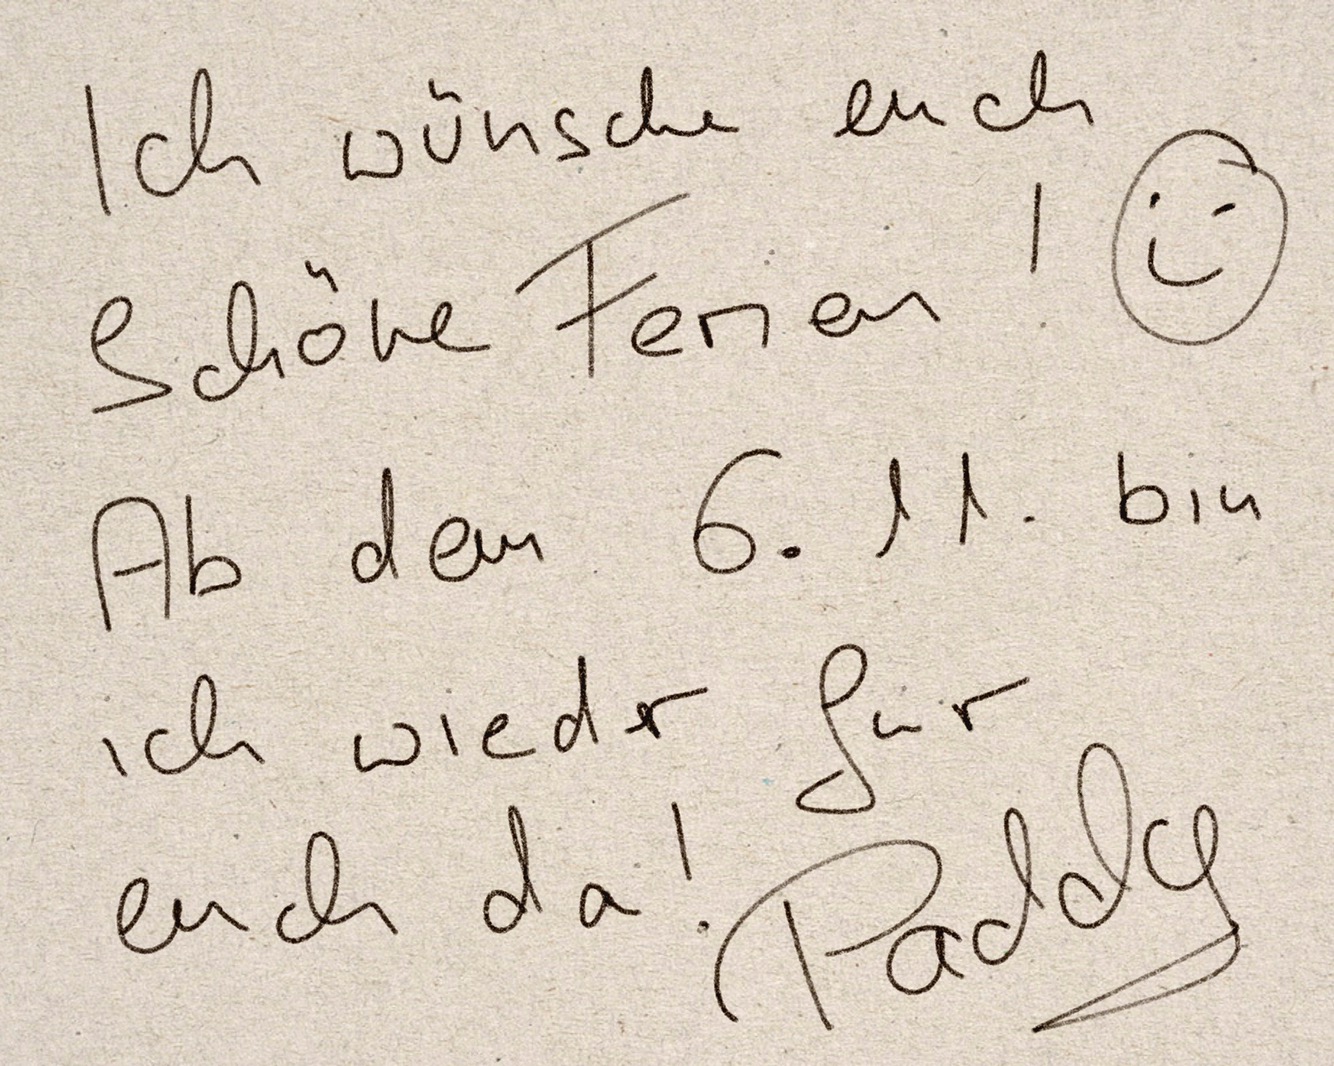 Ich wünsche euch
Schöne Ferien!
Ab dem 6.11. bin
ich wieder fur
euch da!
Paddy